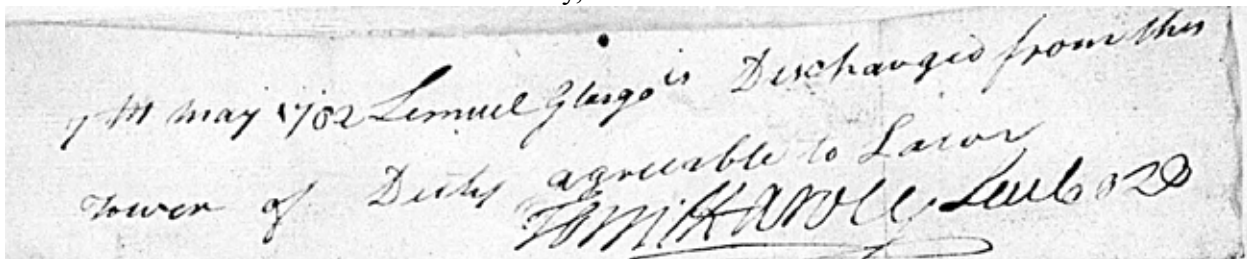 7th may 1782 Lemuel Glasgo is Discharged from this
Tower of Duty agreeable to